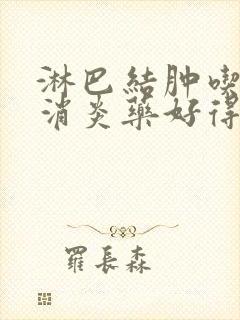 淋巴結肿喫
消炎藥好得
羅長森